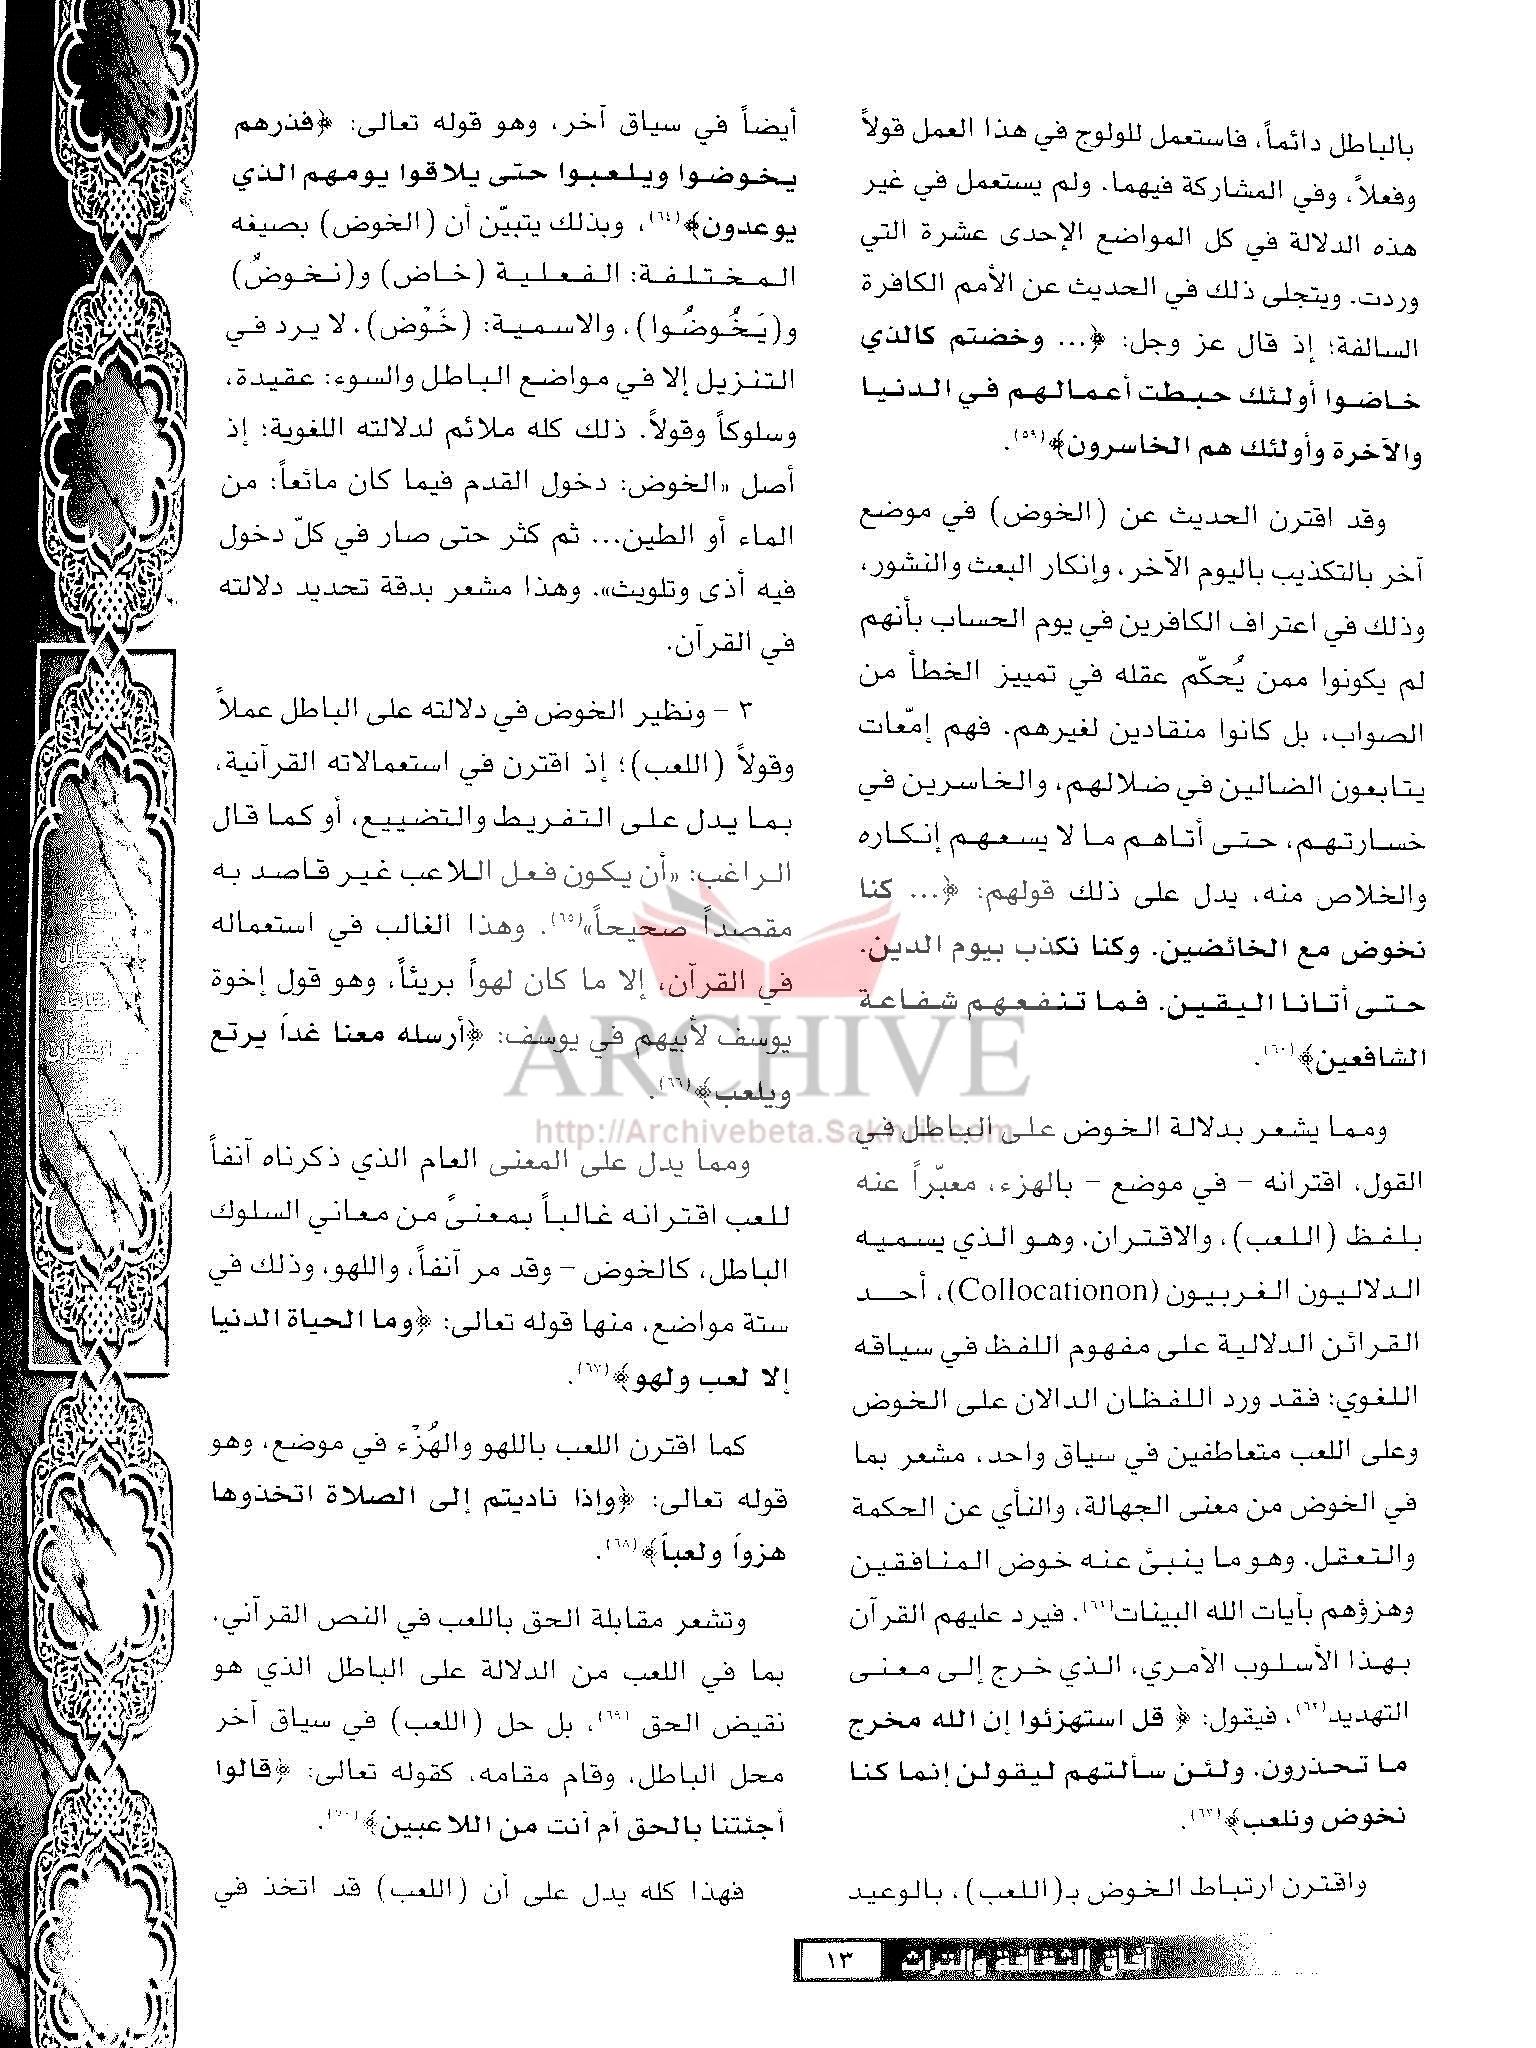 بالباطل دائماً، فاستعمل للولوج في هذا العمل قولاً
وفعلاً، وفي المشاركة فيهما. ولم يستعمل في غير
هذه الدلالة في كل المواضع الإحدى عشرة التي
وردت. ويتجلى ذلك في الحديث عن الأمم الكافرة
السالفة؛ إذ قال عز وجل: ﴿... وخضتم كالذي
خاضوا أولئك حبطت أعمالهم في الدنيا
والآخرة وأولئك هم الخاسرون﴾(٥٩).
وقد اقترن الحديث عن (الخوض) في موضع
آخر بالتكذيب باليوم الآخر، وإنكار البعث والنشور،
وذلك في اعتراف الكافرين في يوم الحساب بأنهم
لم يكونوا ممن يُحكّم عقله في تمييز الخطأ من
الصواب، بل كانوا منقادين لغيرهم. فهم إمّعات
يتابعون الضالين في ضلالهم، والخاسرين في
خسارتهم، حتى أتاهم ما لا يسعهم إنكاره
والخلاص منه، يدل على ذلك قولهم: ﴿... كنا
نخوض مع الخائضين. وكنا نكذب بيوم الدين.
حتى أتانا اليقين. فما تنفعهم شفاعة
الشافعين﴾(٦٠).
ومما يشعر بدلالة الخوض على الباطل في
القول، اقترانه - في موضع - بالهزء، معبّراً عنه
بلفظ (اللعب)، والاقتران. وهو الذي يسميه
الدلاليون الغربيون (Collocationon)، أحد
القرائن الدلالية على مفهوم اللفظ في سياقه
اللغوي؛ فقد ورد اللفظان الدالان على الخوض
وعلى اللعب متعاطفين في سياق واحد، مشعر بما
في الخوض من معنى الجهالة، والنأي عن الحكمة
والتعقل. وهو ما ينبئ عنه خوض المنافقين
وهزؤهم بآيات الله البينات(٦١). فيرد عليهم القرآن
بهذا الأسلوب الأمري، الذي خرج إلى معنى
التهديد(٦٢)، فيقول: ﴿ قل استهزئوا إن الله مخرج
ما تحذرون. ولئن سألتهم ليقولن إنما كنا
نخوض ونلعب﴾(٦٣).
واقترن ارتباط الخوض بـ(اللعب)، بالوعيد
أيضاً في سياق آخر، وهو قوله تعالى: ﴿فذرهم
يخوضوا ويلعبوا حتى يلاقوا يومهم الذي
يوعدون﴾(٦٤)، وبذلك يتبيّن أن (الخوض) بصيغه
المختلفة: الفعلية (خاض) و(نخوضُ)
و(يَخُوضُوا)، والاسمية: (خَوْض). لا يرد في
التنزيل إلا في مواضع الباطل والسوء: عقيدة،
وسلوكاً وقولاً. ذلك كله ملائم لدلالته اللغوية؛ إذ
أصل «الخوض: دخول القدم فيما كان مائعاً: من
الماء أو الطين... ثم كثر حتى صار في كلّ دخول
فيه أذى وتلويث». وهذا مشعر بدقة تحديد دلالته
في القرآن.
٣ - ونظير الخوض في دلالته على الباطل عملاً
وقولاً (اللعب)؛ إذ اقترن في استعمالاته القرآنية،
بما يدل على التفريط والتضييع، أو كما قال
الراغب: «أن يكون فعل اللاعب غير قاصد به
مقصداً صحيحاً»(٦٥). وهذا الغالب في استعماله
في القرآن، إلا ما كان لهواً بريئاً، وهو قول إخوة
يوسف لأبيهم في يوسف: ﴿أرسله معنا غداً يرتع
ويلعب﴾(٦٦).
ومما يدل على المعنى العام الذي ذكرناه آنفاً
للعب اقترانه غالباً بمعنىً من معاني السلوك
الباطل، كالخوض - وقد مر آنفاً، واللهو، وذلك في
ستة مواضع، منها قوله تعالى: ﴿وما الحياة الدنيا
إلا لعب ولهو﴾(٦٧).
كما اقترن اللعب باللهو والهُزْء في موضع، وهو
قوله تعالى: ﴿وإذا ناديتم إلى الصلاة اتخذوها
هزواً ولعباً﴾(٦٨).
وتشعر مقابلة الحق باللعب في النص القرآني،
بما في اللعب من الدلالة على الباطل الذي هو
نقيض الحق (٦٩)، بل حل (اللعب) في سياق آخر
محل الباطل، وقام مقامه، كقوله تعالى: ﴿قالوا
أجئتنا بالحق أم أنت من اللاعبين﴾(٧٠).
فهذا كله يدل على أن (اللعب) قد اتخذ في
ARCHIVE
http://Archivebeta.Sakhrit.com
آفاق الثقافة والتراث ١٣